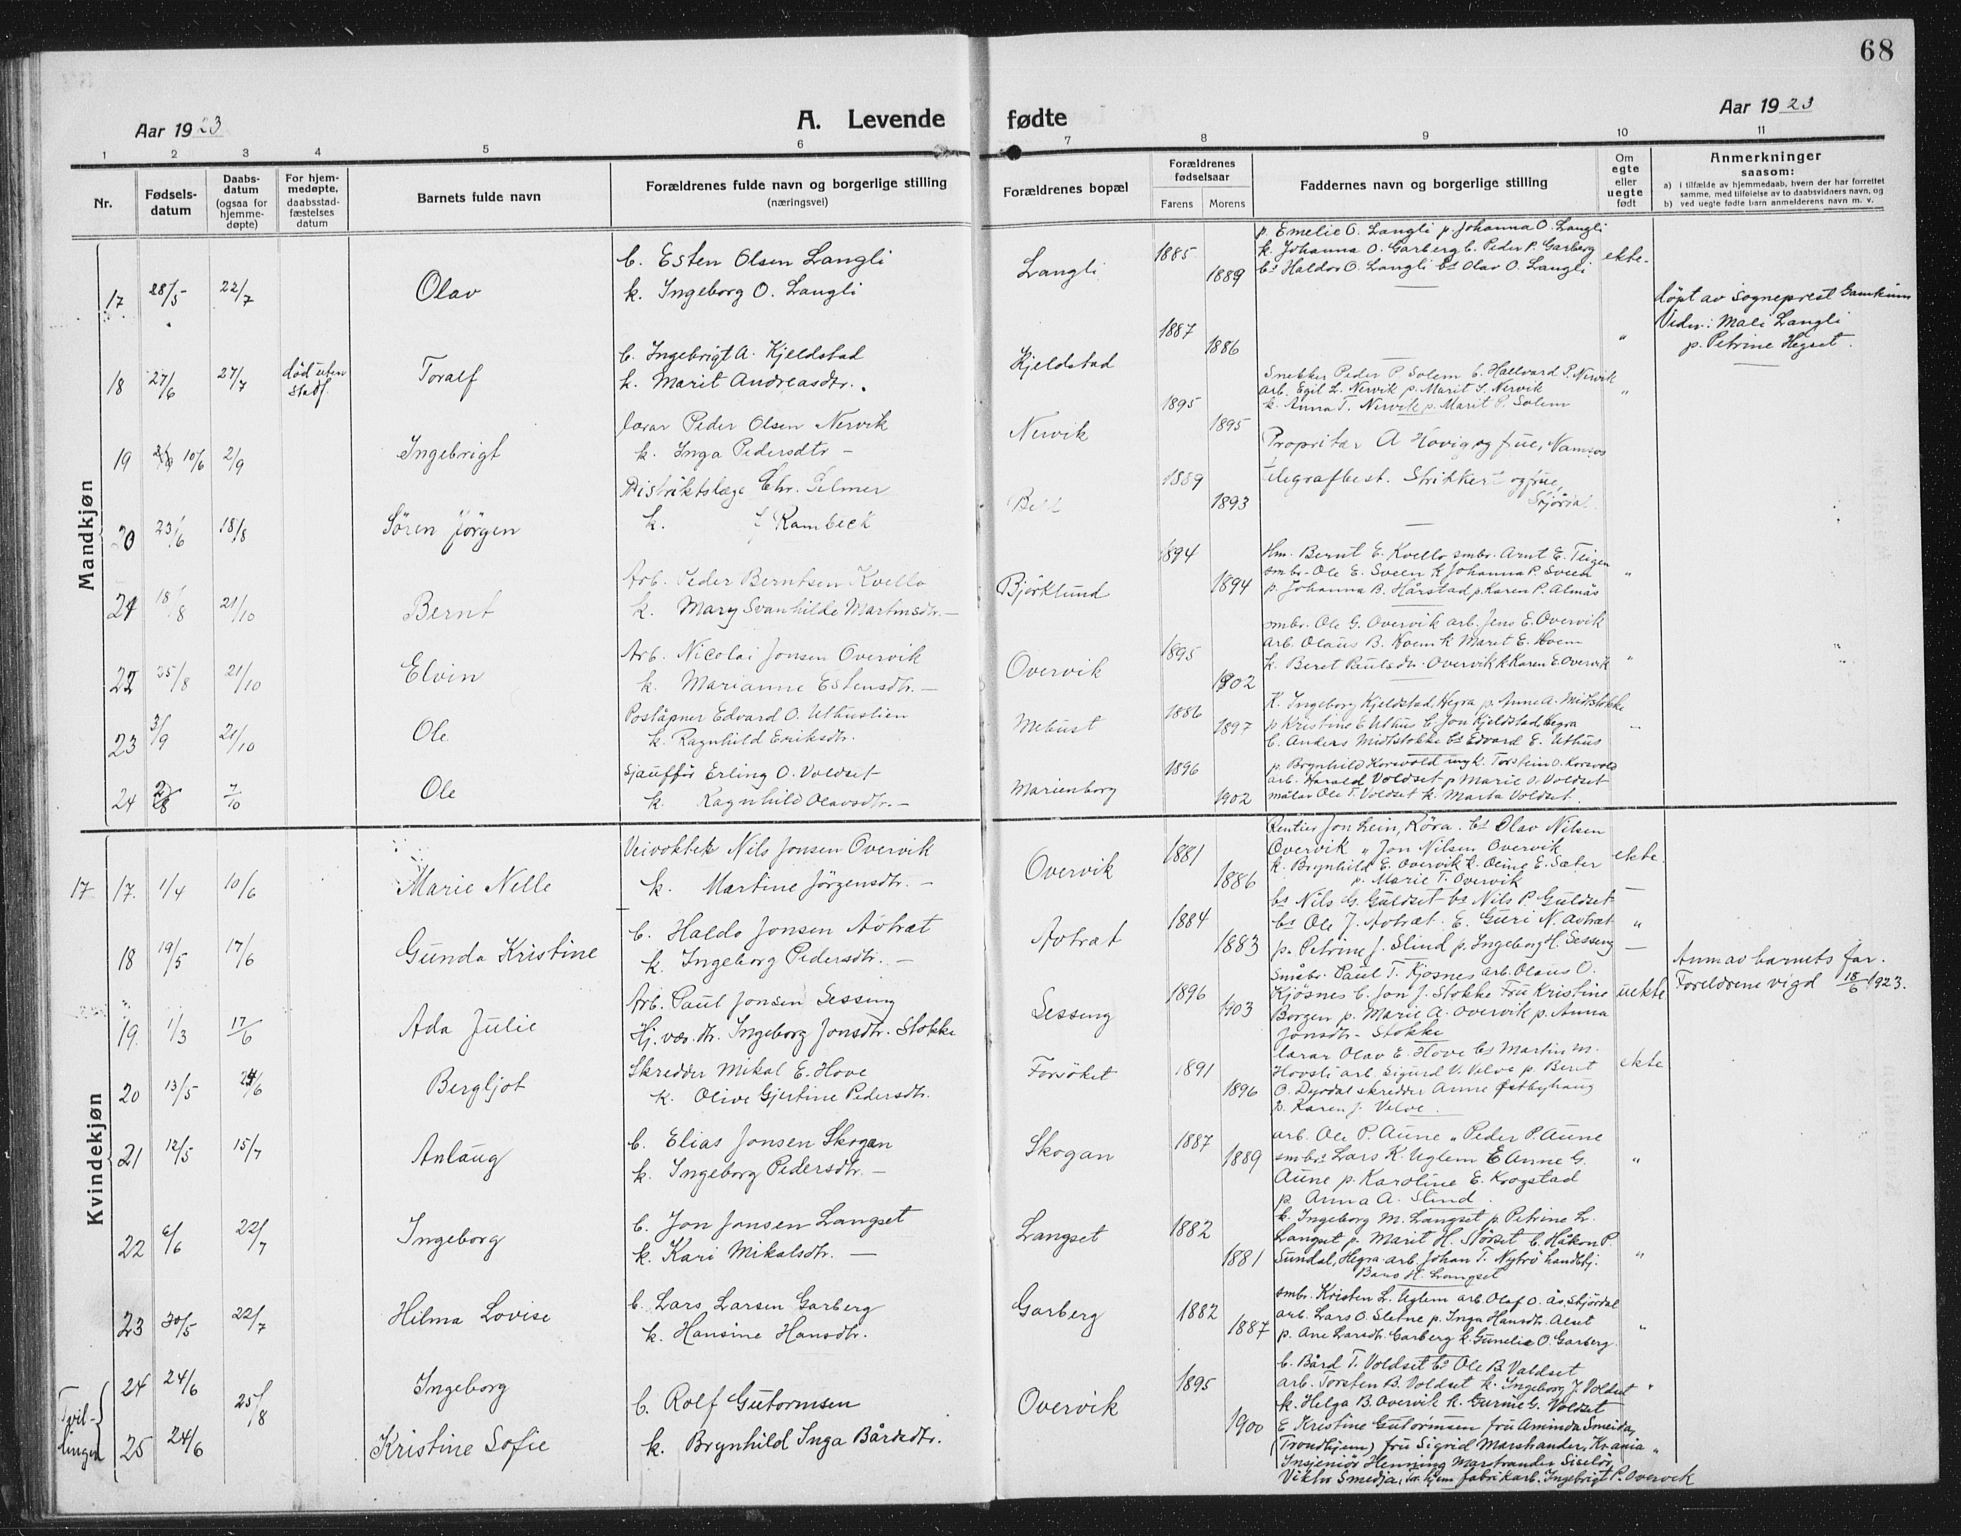 68
Aar 1923
A. Levende fødte
Aar 1923
1 2 3 4 5 6 7 8 9 10 11
Nr.
Fødsels-
datum
Daabs-
datum
(ogsaa for
hjemme-
døpte)
For hjem-
medøpte,
daabsstad-
fæstelses
datum
Barnets fulde navn
Forældrenes fulde navn og borgerlige stilling
(næringsvei)
Forældrenes bopæl
Forældrenes
fødselsaar
Farens Morens
Faddernes navn og borgerlige stilling
Om
egte
eller
uegte
født
Anmerkninger
saasom:
a) i tilfælde av hjemmedaab, hvem der har forrettet
samme, med tilføielse av to daabsvidners navn, og
b) ved uegte fødte barn anmelderens navn m. v.
Mandkjøn
17 28/5 22/7 Olav
b. Esten Olsen Langli
k. Ingeborg O. Langli
Langli 1885 1889
p. Emelie O. Langli p. Johanna O. Langli
k. Johanna O. Garberg b. Peder P. Garberg
bs Haldor O. Langli bs Olav O. Langli
ekte
18 27/6 27/7 død uten
stadf.
Toralf
b. Ingebrigt A. Kjeldstad
k. Marit Andreasdtr.
Kjeldstad 1887 1886
"
døpt av sogneprest
Vidn: Mali Langli
p. Petrine Hegset.
19 10/6 2/9 Ingebrigt
lærar Peder Olsen Nervik
k. Inga Pedersdtr –
Nervik 1895 1895
Snekker Peder P. Solem b. Hallvard P. Nervik
arb. Egil L. Nervik p. Marit S. Nervik
k. Anna T. Nervik p. Marit P. Solem
"
20 23/6 18/8 Søren Jørgen
Distriktslæge Chr. Selmer
k. Rambeck
1889 1893
Propritær A Hovig og frue, Namsos
telegrafbest. Strikkert og frue,
Stjørdal
21 18/8 21/10 Bernt
Arb. Peder Berntsen Kvello
k. Mary Svanhilde Martinsdtr. –
Bjørklund 1894 1894
Hm. Bernt E. Kvello smbr. Arnt E. Teigen
smbr. Ole E. Sveen k Johanna P. Sveen
p. Johanna B. Hårstad p. Karen P. Almås
"
22 25/8 21/10 Elvin
Arb. Nicolai Jonsen Overvik
k. Marianne Estensdtr. –
Overvik 1895 1902
smbr. Ole G. Overvik arb. Jens E. Overvik
arb. Olaus B. Hoem k Marit E. Hoem
k. Beret Paulsdtr. Overvik k Karen E Overvik
"
23 3/9 21/10 Ole
Poståpner Edvard O. Uthustien
k. Ragnhild Eriksdtr.
Mebust 1886 1897
K. Ingeborg Kjeldstad Hegra p. Anne A. Midtstokke
p Kristine E Uthus b. Jon Kjeldstad Hegra
b. Anders Midtstokke bs Edvard E. Uthus
24 7/10 Ole
Sjauffør Erling O. Voldset
k. Ragnhild Olavsdtr. –
Marienborg 1896 1902
p. Brynhild Korsvold ungk. Torstein O. Korsvold
arb. Harald Voldset p Marie O. Voldset
målar Ole T. Voldset k. Marta Voldset.
Kvindekjøn
17 17. 1/4 10/6 Marie Nelle
Veivokter Nils Jonsen Overvik
k. Martine Jørgensdtr. –
Overvik 1881 1886
Rentier Jon Lein, Røra. bs Olav Nilsen
Overvik " Jon Nilsen Overvik
k. Brynhild E. Overvik k. Oline E. Sæter
p. Marie T. Overvik
ekte
18 19/5 17/6 Gunda Kristine
b. Haldo Jonsen Avtræt
k. Ingeborg Pedersdtr. –
Avtræt 1884 1883
bs Nils G. Guldset bs Nils P Guldset
bs Ole J. Avtræt. E. Guri N. Avtræt
p. Petrine J. Slind p. Ingeborg H. Sesseng
"
19. 1/3 17/6 Ada Julie
Arb. Paul Jonsen Sesseng
Hj. vær. dtr. Ingeborg Jonsdtr. Stokke
Sesseng 1896 1903
Småbr. Paul T. Kjosnes arb. Olaus O.
Kjøsnes b. Jon J. Stokke Fru Kristine
Borgen p. Marie A. Overvik p. Anna
Jonsdtr. Stokke
uekte
Anm av barnets far.
Foreldrene vigd 18/6 1923.
20 13/5 24/6 Bergljot
Skredder Mikal E. Hove
k. Olive Gjertine Pedersdtr.
Forsøket 1891 1896
lærar Olav E. Hove bs Martin M.
Hovsli arb. Sigurd V. Velve p. Berit
O. Dyrdal skredder Anne Østbyhaug
p. Karen J. Velve.
ekte
21 12/5 15/7 Anlaug
b. Elias Jonsen Skogan
k. Ingeborg Pedersdtr. –
Skogan 1887 1889
arb. Ole P. Aune " Peder P. Aune
smbr. Lars K. Uglem E Anne G.
Aune p. Karoline E. Krogstad
p. Anna A. Slind.
"
22 6/6 22/7 Ingeborg
b. Jon Jonsen Langset
k. Kari Mikalsdtr. –
Langset 1882 1881
k. Ingeborg M. Langset p. Petrine L.
Langset p. Marit H. Størset b. Håkon P.
Sundal, Hegra arb. Johan T. Nytrø handlbj.
H. Langset
"
23 30/5 22/7 Hilma Lovise
b. Lars Larsen Garberg
k. Hansine Hansdtr.
Garberg 1882 1887
smbr. Kristen L. Uglem arb. Olaf O. Ås. Stjørdal
arb. Lars O. Sletne p. Inga Hansdtr. Alset
p. Ane Larsdtr. Garberg k. Gunelie O. Garberg.
"
Tvil-
linger
24 24/6 25/8 Ingeborg
25 24/6 Kristine Sofie
b. Rolf Gutormsen
k. Brynhild Inga Bårdsdtr.
Overvik 1895 1900
b. Bård T. Voldset bs Ole B. Voldset
arb. Torsten B. Voldset k. Ingeborg J. Voldset
k. Helga B. Overvik k. Gurine G. Voldset
E Kristine Gutormsen fru Aminda Smedja,
(Trondhjem) fru Sigrid Marshander, Krania
Insjeniør Henning Marstrander
Viktor Smedja, Tr.hjem fabrikarb. Ingebrigt P. Overvik
"
"